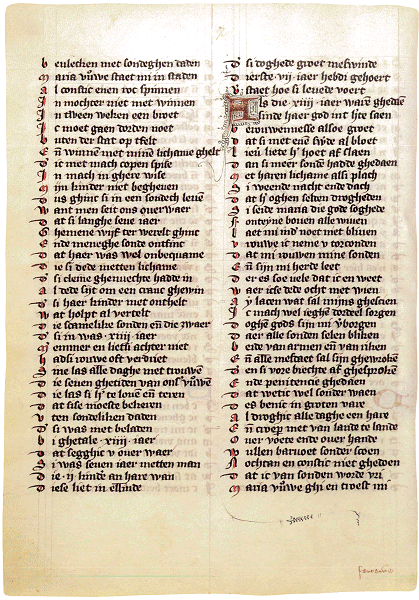 b evlecken met sondeghen daden
m aria vrouwe staet mi in staden
A l constic enen roc spinnen
I n mochter niet met winnen
I n tween weken een broet
I c moet gaen dorden noet
b uten der stat op tfelt
E n winnen met minen lichame ghelt
D aer ic met mach copen spise
I n mach in ghere wise
m ijn kinder niet begheven
D us ghinc si in een sondech leven
w ant men seit ons overwaer
D at si langhe seve iaer
G hemene wijf ter werelt ghinc
E nde meneghe sonde ontfinc
D at haer was wel onbequame
D ie si dede metten lichame
D aer si cleine ghenuechte hadde in
A l dede sijt om een cranc ghewin
D aer si haer kinder met onthelt
W at holpt al vertelt
D ie scamelike sonden en die zwaer
D aer si in was .xiiij. iaer
m aer emmer en lietsi achter niet
h adsi rouwe oft verdriet
S ine las alle daghe met trouwen
D ie seven ghetiden van onser vrouwen
D ie las si haer te loven en teren
D at sise moeste bekeren
U ten sondeliken daden
D aer si was met beladen
b i ghetale .xiiij. iaer
D at segghic u over waer
S i was seven iaer metten man
D ie .ij. kindre an hare wan
D iese liet in ellinde
D aer si doghede groet meswinde
D ierste .vij. iaer hebdi gehoert
V erstaet hoe si levede voert
Als die .xiiij. iaer waren ghedaen
Sinde haer god int herte saen
B erouwennesse alsoe groet
D at si met enen swerde al bloet
L iever liete haer hoet af slaen
D an si meer sonden hadde ghedaen
M et haren lichame alsi plach
S i weende nacht ende dach
D at haer oghen selden drogheden
S i seide maria die gode soghede
F onteyne boven alle wiven
L aet mi inder noet niet bliven
V rouwe ic neme u torconden
D at mi rouwen mine sonden
E n sijn mi herde leet
D er es soe vele dat ic en weet
W aer icse dede ocht met wien
A y lacen wat sal mijns ghescien
I c mach wel ieghen tordeel sorgen
D oghen gods sijn mi verborgen
D aer alle sonden selen bliken
B eide van armen en van riken
E n alle mesdaet sal sijn ghewroken
D aer en si vore biechte af ghesproken
E nde penitencie ghedaen
D at wetic wel sonder waen
D es benic in groten vare
A l droghic alle daghe een hare
E n croep met van lande te lande
O ver voete ende over hande
W ullen barvoet sonder scoen
N ochtan en constic niet ghedoen
D at ic van sonden worde vri
M aria vrouwe ghi en troest mi